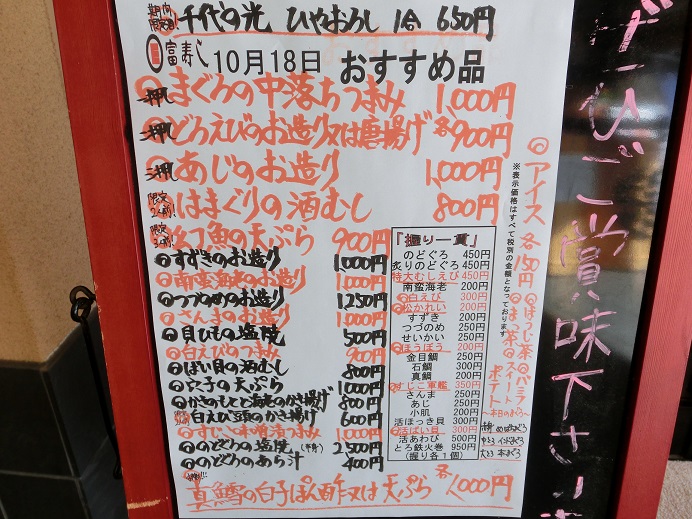 期間限定! 千代の光 ひやおろし 1合 650円
富寿し 10月18日 おすすめ品
一押し まぐろの中落ちつまみ 1,000円
一押し どろえびのお造り又は唐揚げ 各900円
一押し あじのお造り 1,000円
限定2人前! はまぐりの酒むし 800円
限定3人前! 幻魚の天ぷら 900円
すずきのお造り 1,000円
南蛮海老のお造り 1,000円
つづめのお造り 1,250円
さんまのお造り 1,000円
貝ひもの塩焼 500円
白えびのつまみ 900円
ばい貝の酒むし 800円
穴子の天ぷら 1,000円
かきのもとと海老のかき揚げ 800円
白えび頭のかき揚げ 600円
すじこ味噌漬つまみ 1,000円
のどぐろの塩焼(半身) 2,500円
のどぐろのあら汁 400円
真鱈の白子ぽん酢又は天ぷら 各1,000円
『握り一貫』
のどぐろ 450円
炙りのどぐろ 450円
特大むしえび 450円
南蛮海老 200円
白えび 300円
松かれい 200円
すずき 250円
つづのめ 250円
せいかい 250円
ほうぼう 200円
金目鯛 250円
石鯛 300円
真鯛 200円
すじこ軍艦 350円
さんま 250円
あじ 250円
小肌 200円
活ほっき貝 300円
活ばい貝 300円
活あわび 500円
とろ鉄火巻 950円
(握り各1個)
※表示価格はすべて税別の金額となっております。
アイス 各150円
ほうじ茶
バニラ
まっ茶
スイートポテト
~本日のまぐろ~
大とろ 本まぐろ
ぜひご賞味下さい